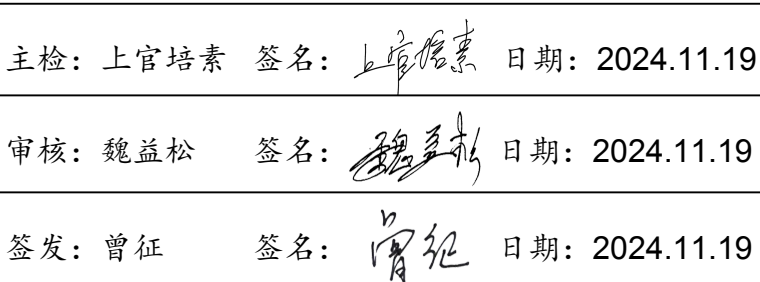 主检：上官培素 签名：上官培素 日期：2024.11.19
审核：魏益松 签名：魏益松 日期：2024.11.19
签发：曾征 签名：曾征 日期：2024.11.19